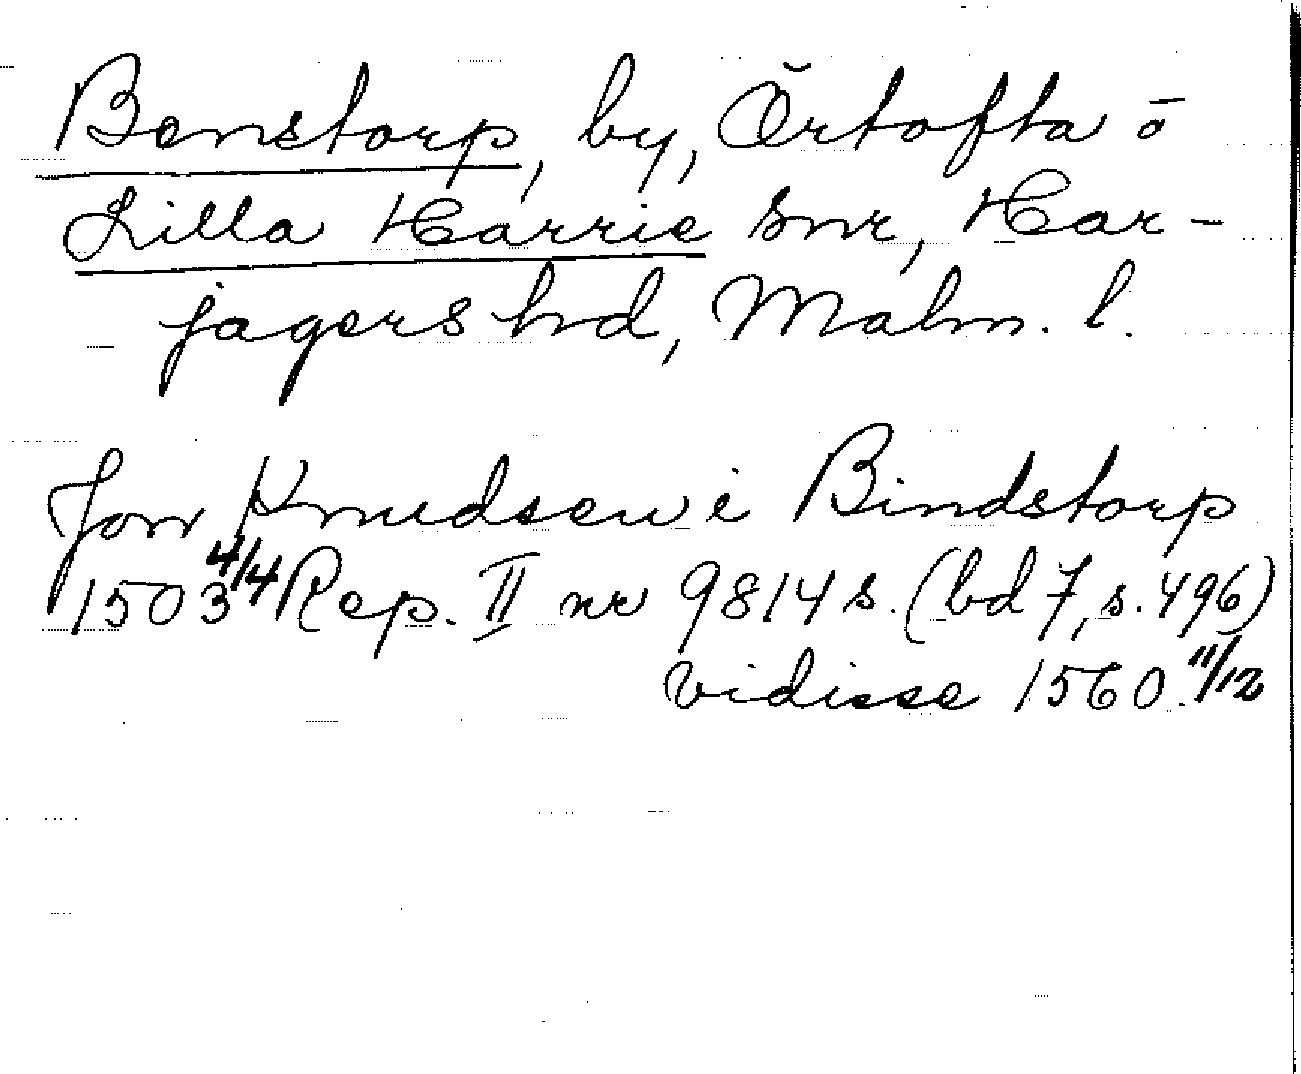 Benstorp, by, Örtofta o
Lilla Harrie snr, Har-
jagers hd, Malm. l.
Jon Knudsen i Bindstorp
1503 4/4 Rep. II nr 9814 s. (bd 7, s. 496)
vidisse 1560. 11/12